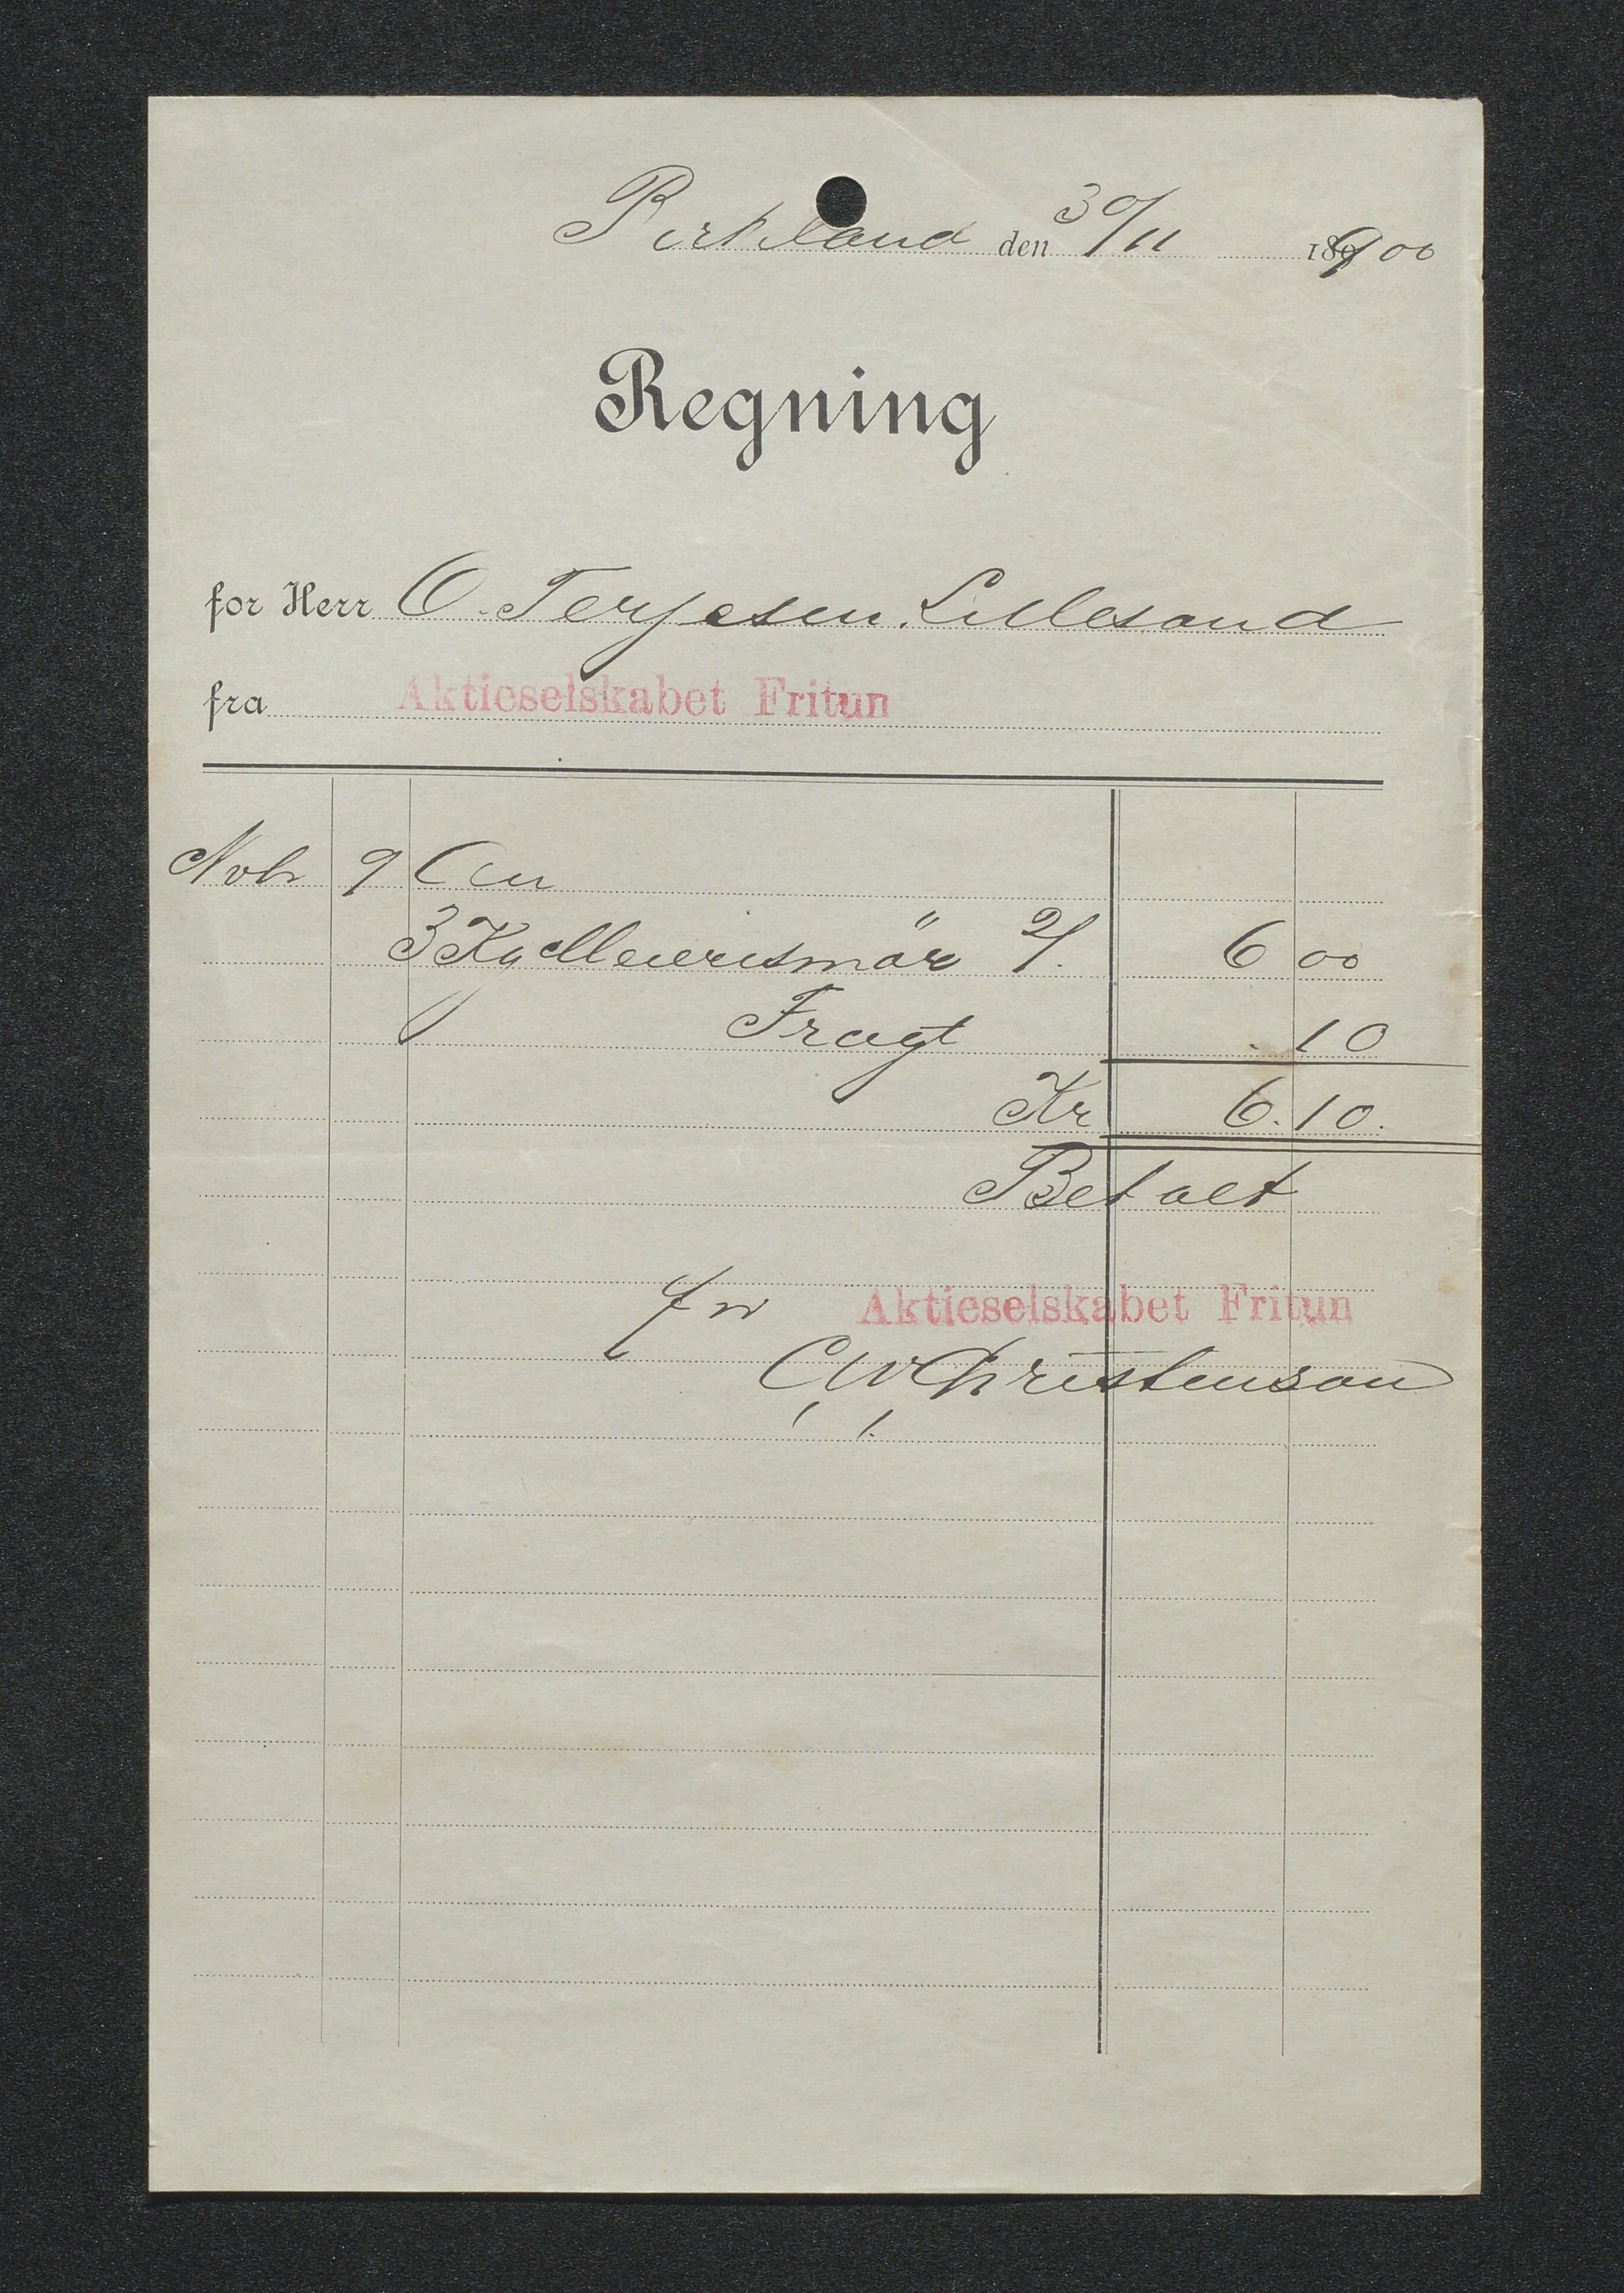 Birkeland den 30/11 1900
Regning
for Herr O. Terjesen. Lillesand
fra Aktieselskabet Fritun
Novbr 9 An
3 Kg Meierismör 2/. 6 00
Fragt . 10
Kr 6. 10.
Betalt
for Aktieselskabet Fritun
C W Christenson